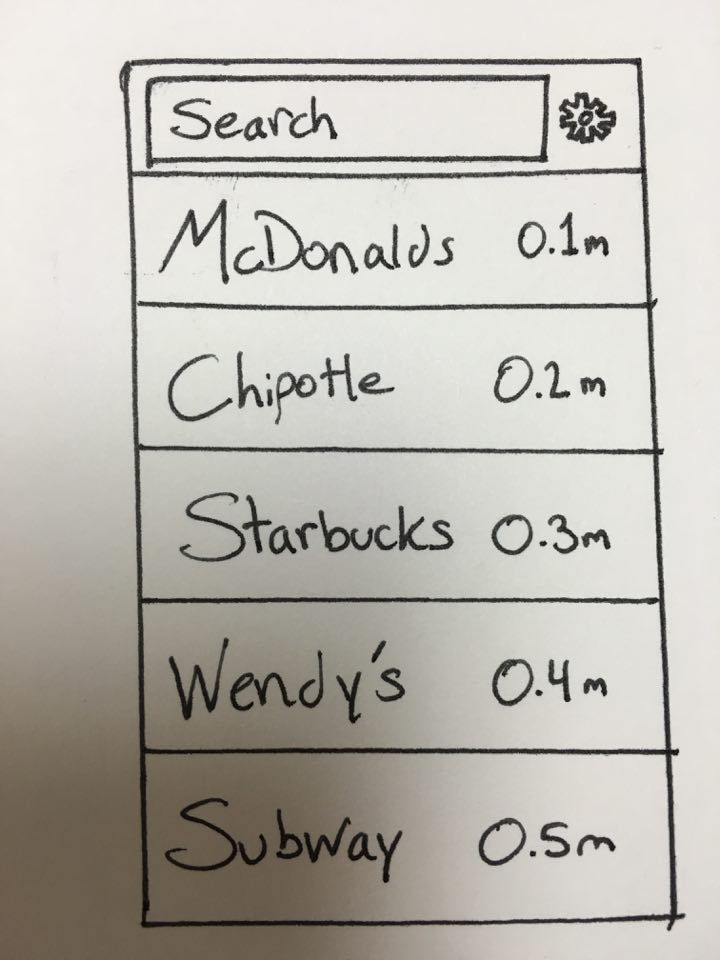 Search
McDonalds 0.1m
Chipotle 0.2m
Starbucks 0.3m
Wendy's 0.4m
Subway 0.5m